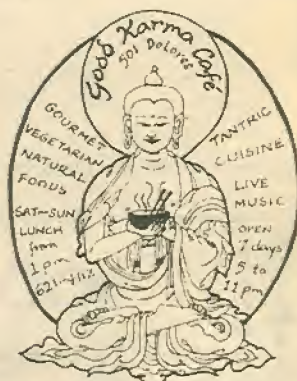 Good Karma Café
501 Dolores
GOURMET
VEGETARIAN
NATURAL
FOODS
SAT-SUN
LUNCH
from
1 pm
621-4112
TANTRIC
CUISINE
LIVE
MUSIC
OPEN
7 days
5 to
11 pm